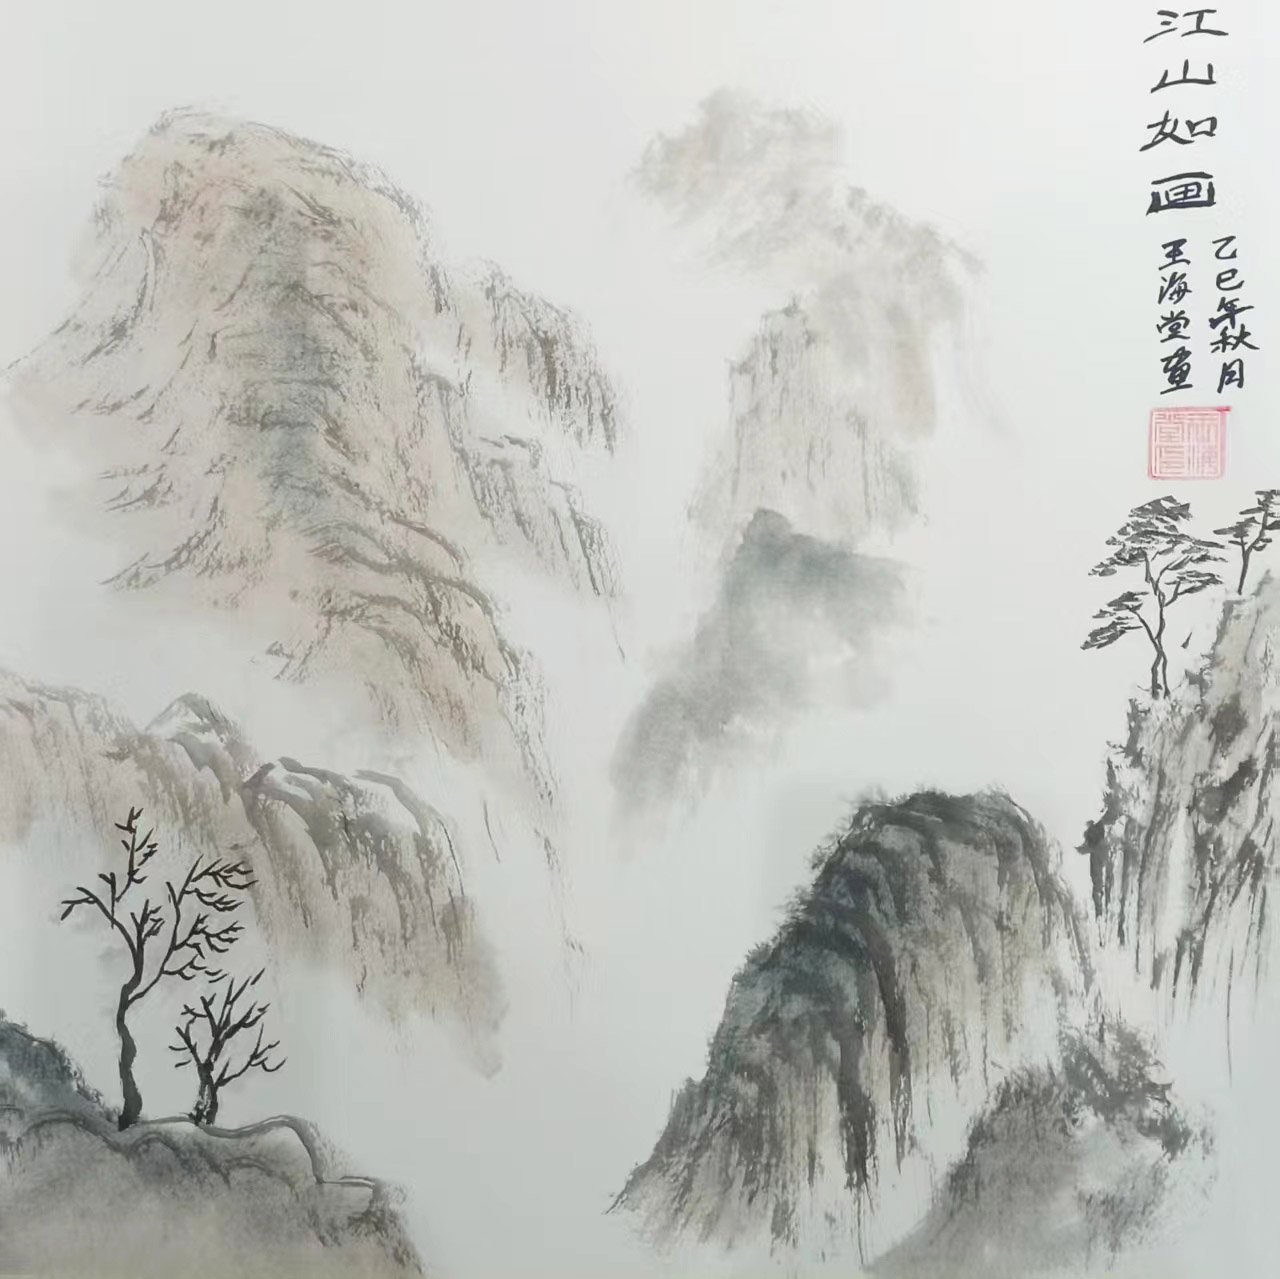 江山如画
乙巳年秋月
王海堂画